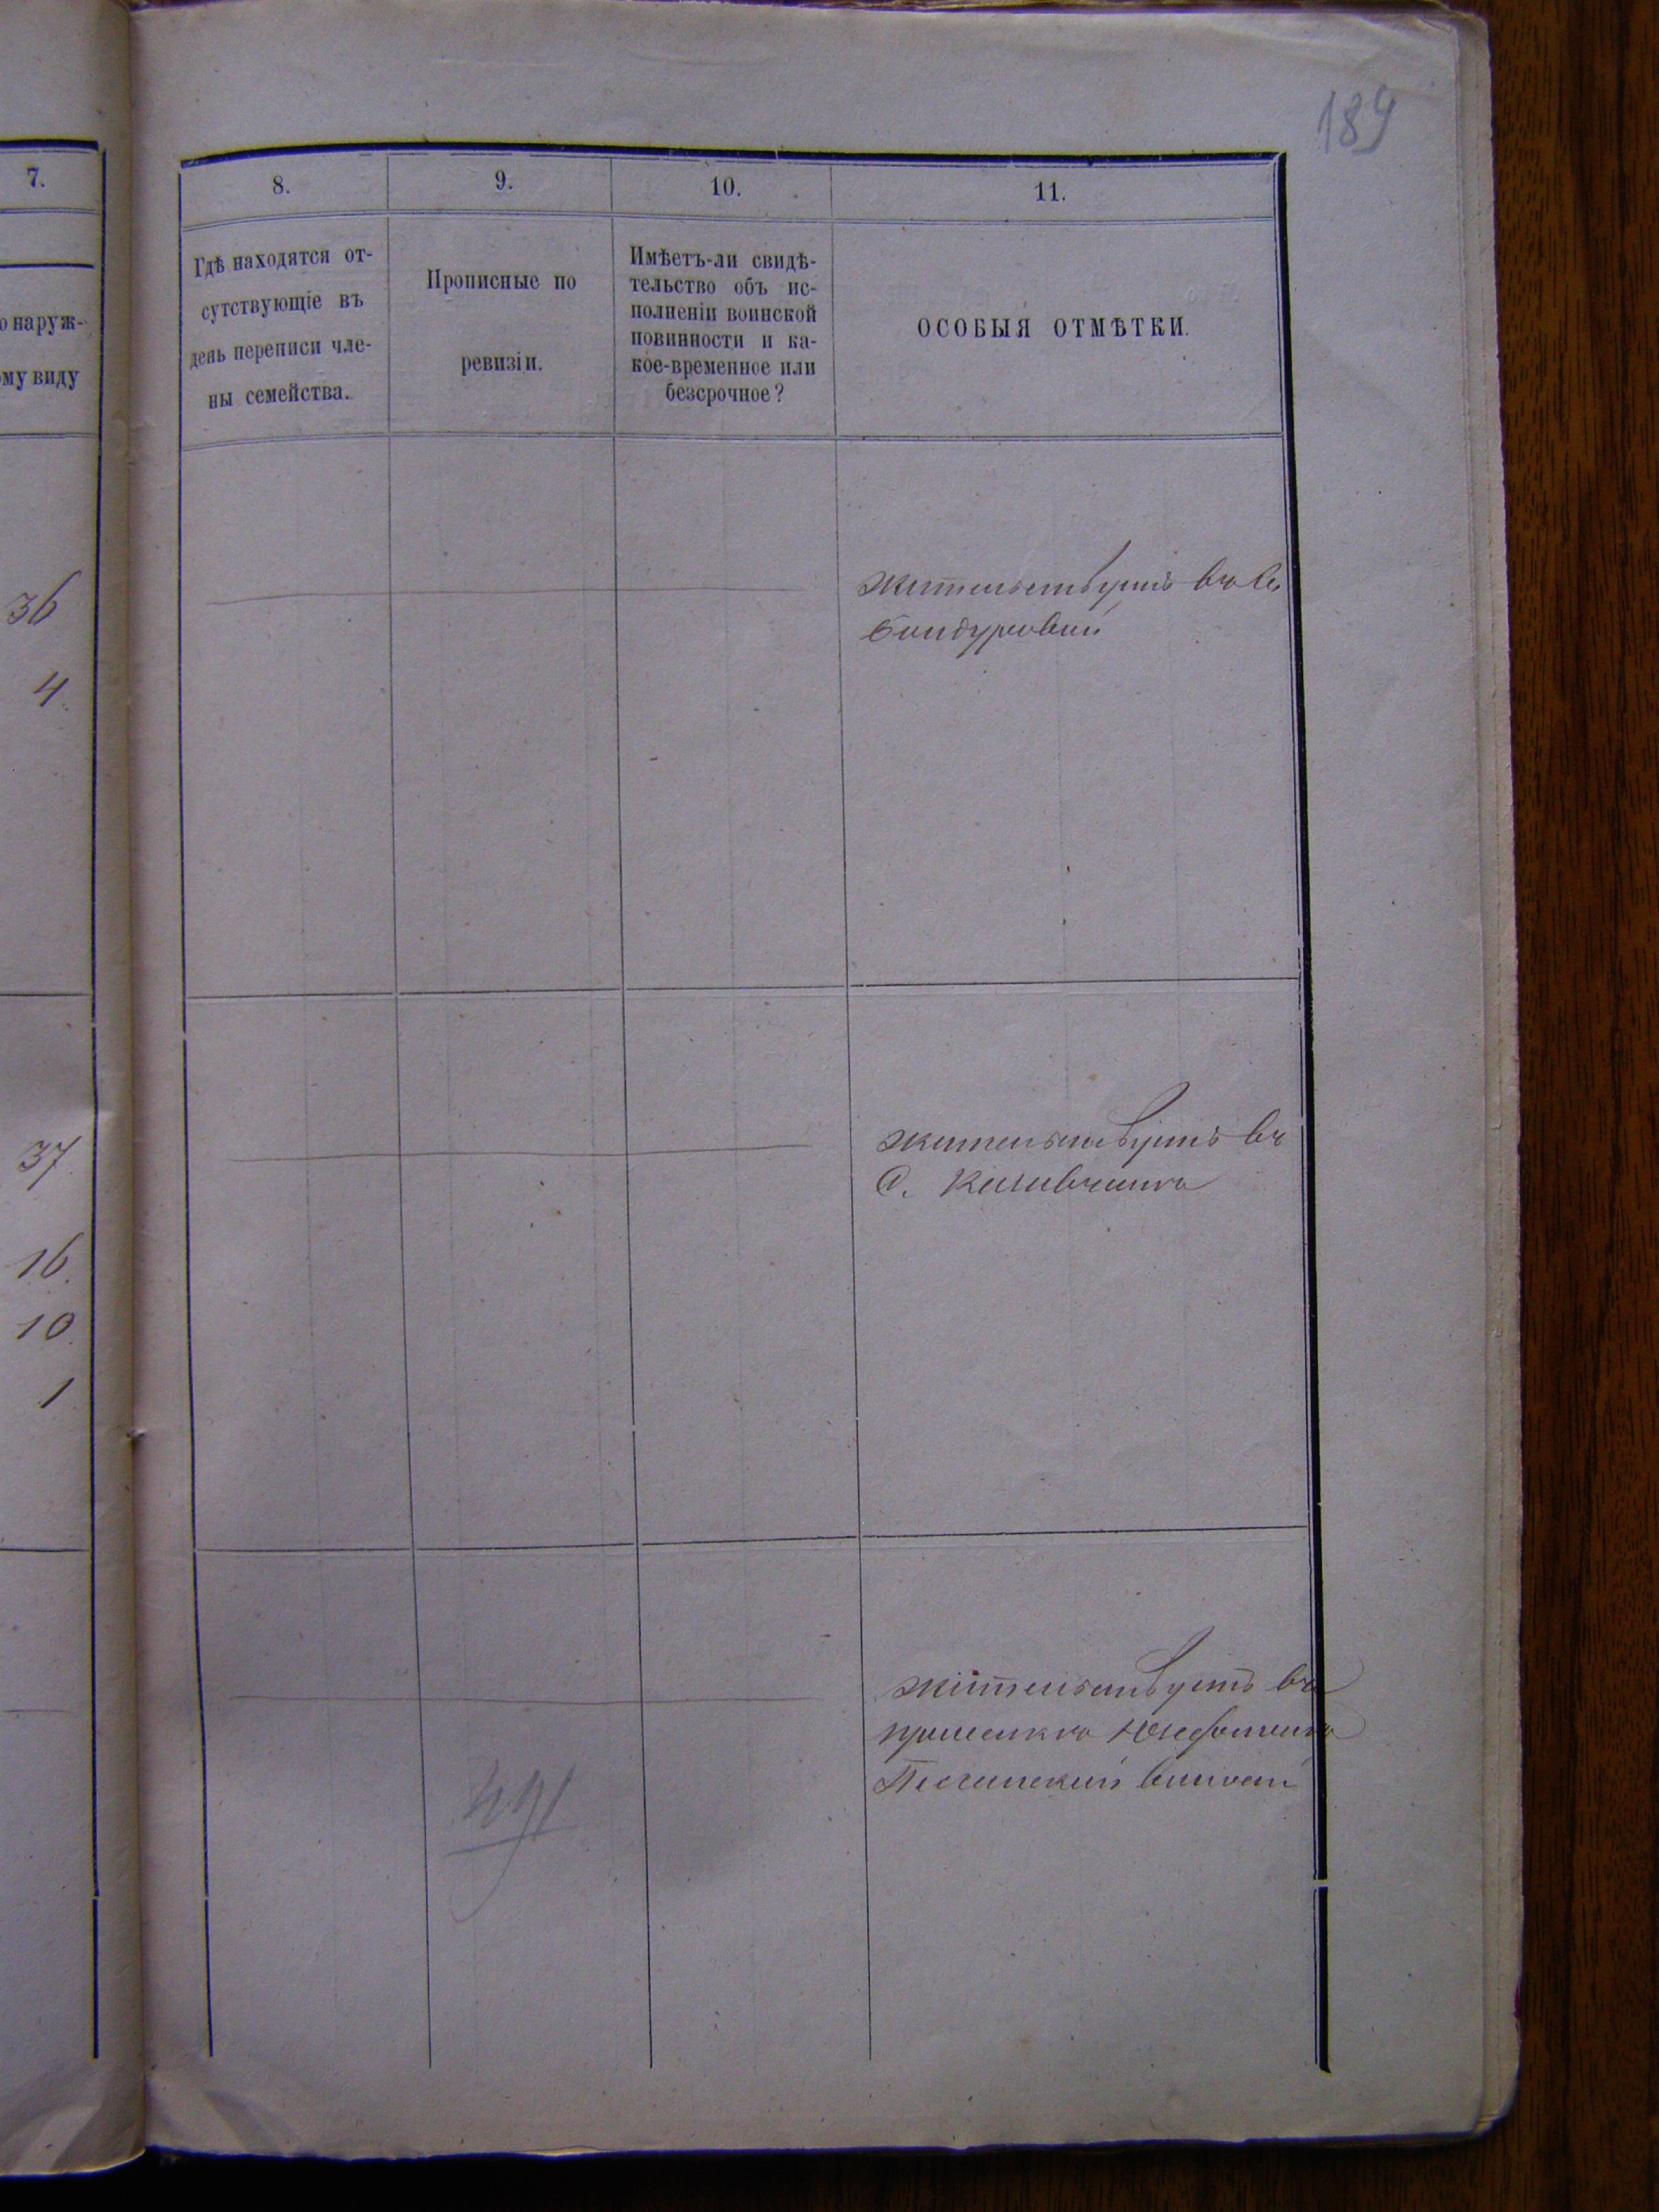 189
7.
о наруж-
ому виду
36
4
37
16
10
1
8.
9.
10.
11.
Гдѣ находятся от-
сутствующіе въ
день переписи чле-
ны семейства.
Прописные по
ревизіи.
Имѣетъ-ли свидѣ-
тельство объ ис-
полненіи воинской
повинности и ка-
кое-временное или
безсрочное?
ОСОБЫЯ ОТМѢТКИ.
жительствуютъ въ с.
Бондуровкѣ
жительствуютъ въ
с.
жительствуетъ въ
Песчанской